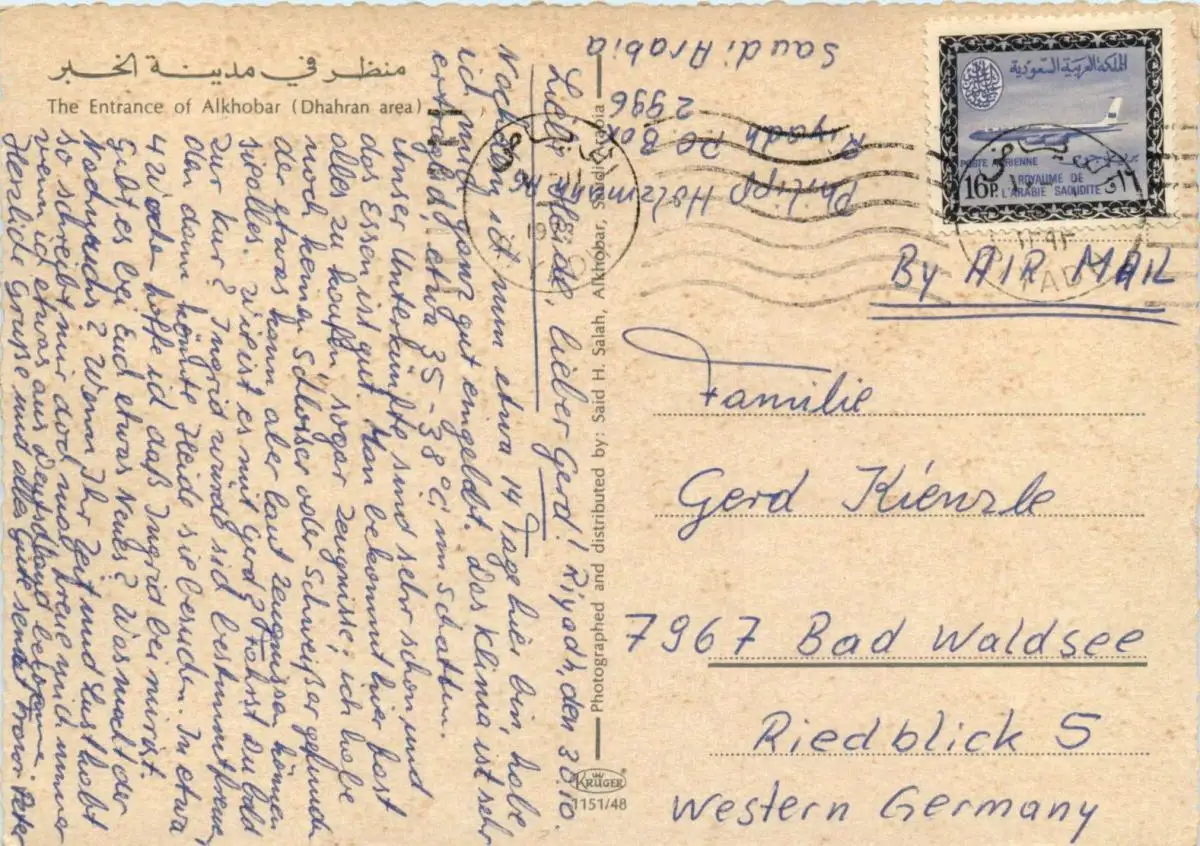 منظر في مدينة الخبر
The Entrance of Alkhobar (Dhahran area)
Liebe Heide, lieber Gerd! Riyadh, den 30.10.
Nachdem ich nun etwa 14 Tage hier bin, habe
ich mich ganz gut eingelebt. Das Klima ist sehr
erträglich, etwa 35-38°C im Schatten.
Unser Unterkünfte sind sehr schön und
das Essen ist gut. Man bekommt hier fast
alles zu kaufen, sogar Zeugnisse; ich habe
noch keinen Schlosser oder Schweißer gefunden
de etwas kann aber laut Zeugnissen können
sie alles. Wie ist es mit Gerd? Fährst du bald
zur Kur? Ingrid würde sich bestimmt freuen,
den dann könnte Heide sie besuchen. In etwa
4 Wochen hoffe ich daß Ingrid bei mir ist.
Gibt es bei Euch etwas Neues? Was macht der
Nachwuchs? Wenn Ihr Zeit und Lust habt
so schreibt mir doch mal, freue mich immer
wenn ich etwas aus Deutschland bekomme.
Herzliche Grüße und alles Gute sendet Peter
Photographed and distributed by: Said H. Salah, Alkhobar, Saudi Arabia
KRÜGER
1151/48
Philipp Holzmann AG
Riyadh P.O. Box
2996
Saudi Arabia
المملكة العربية السعودية
POSTE AERIENNE
16P.
ROYAUME DE
L'ARABIE SAOUDITE
١٦
By AIR MAIL
Familie
Gerd Kienzle
7967 Bad Waldsee
Riedblick 5
Western Germany